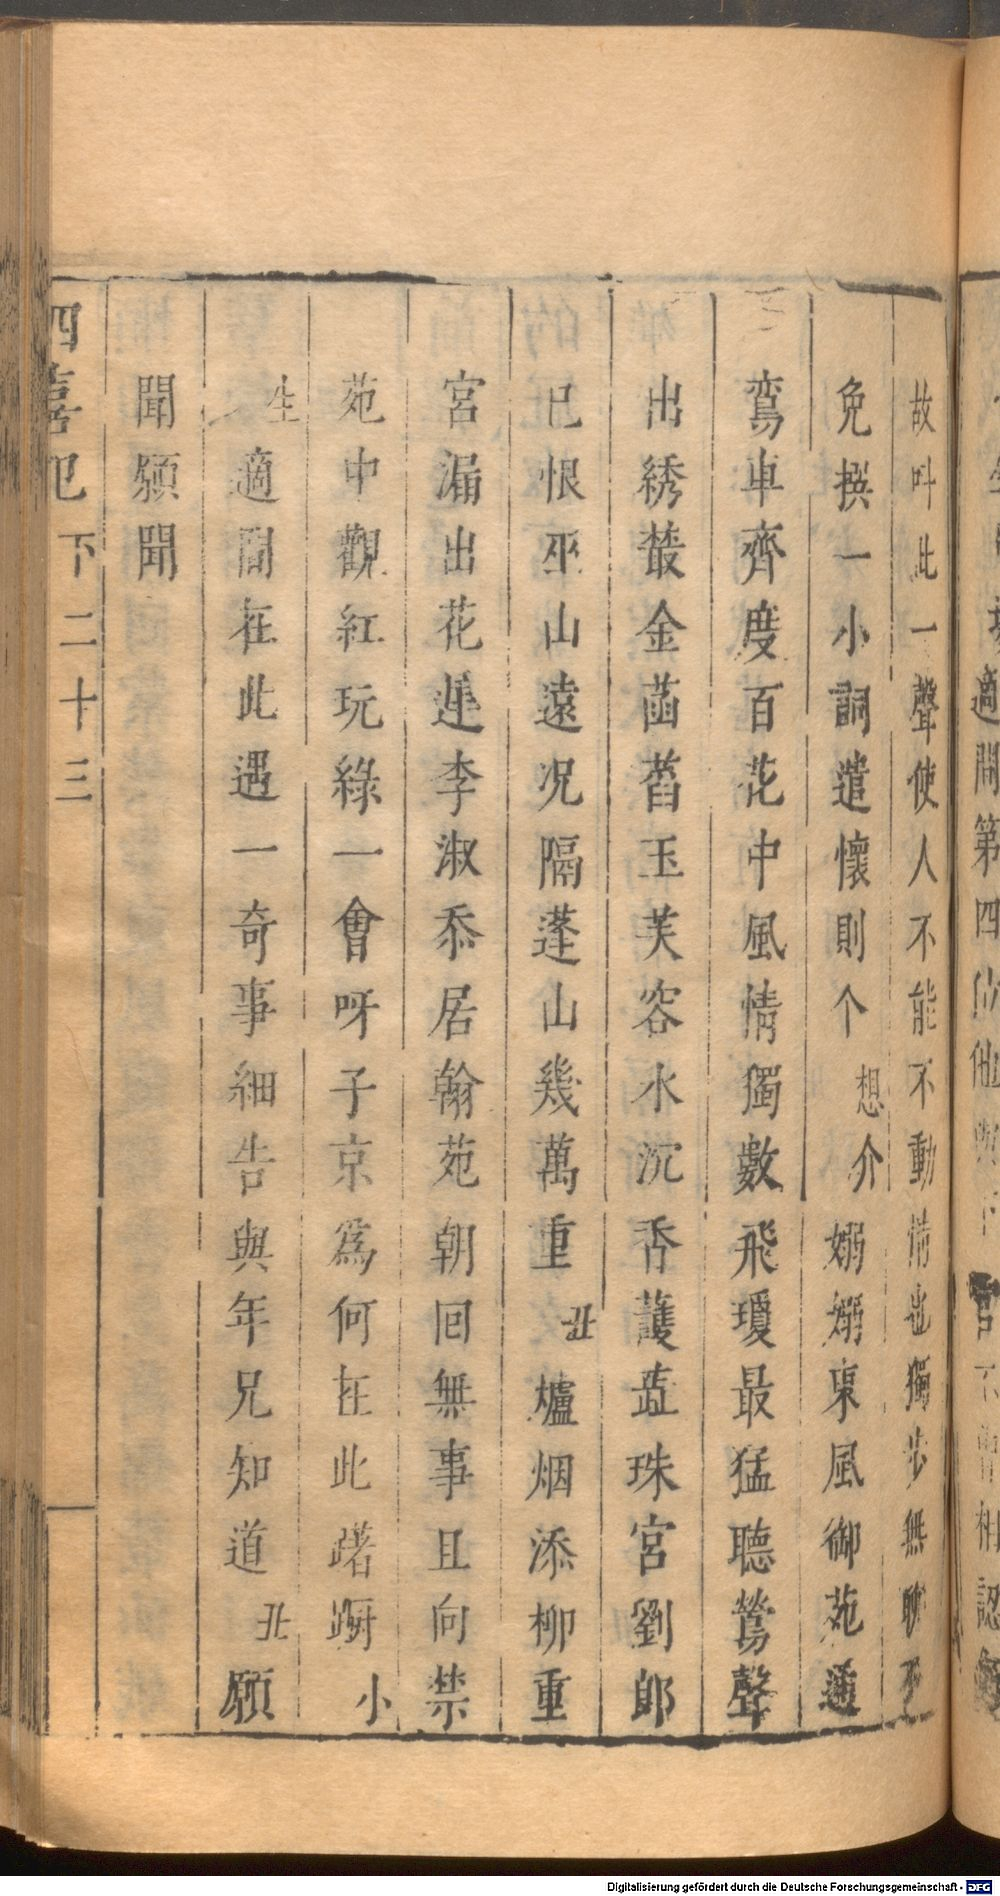 適間第四
相認
故叫此一聲使人不能不動情也獨步無聊不
免撰一小詞遣懷則个 想介 嫋嫋東風御苑通
鸞車齊度百花中風情獨數飛瓊最猛聽鶯聲
出綉叢金菡萏玉芙容水沉香護蕋珠宮劉郎
已恨巫山遠况隔蓬山幾萬重 丑 爐烟添柳重
宮漏出花遲李淑忝居翰苑朝回無事且向禁
苑中觀紅玩綠一會呀子京爲何在此躇蹰 小
生 適間在此遇一奇事細告與年兄知道 丑 願
聞願聞
四喜记 下 二十三
Digitalisierung gefördert durch die Deutsche Forschungsgemeinschaft - DFG